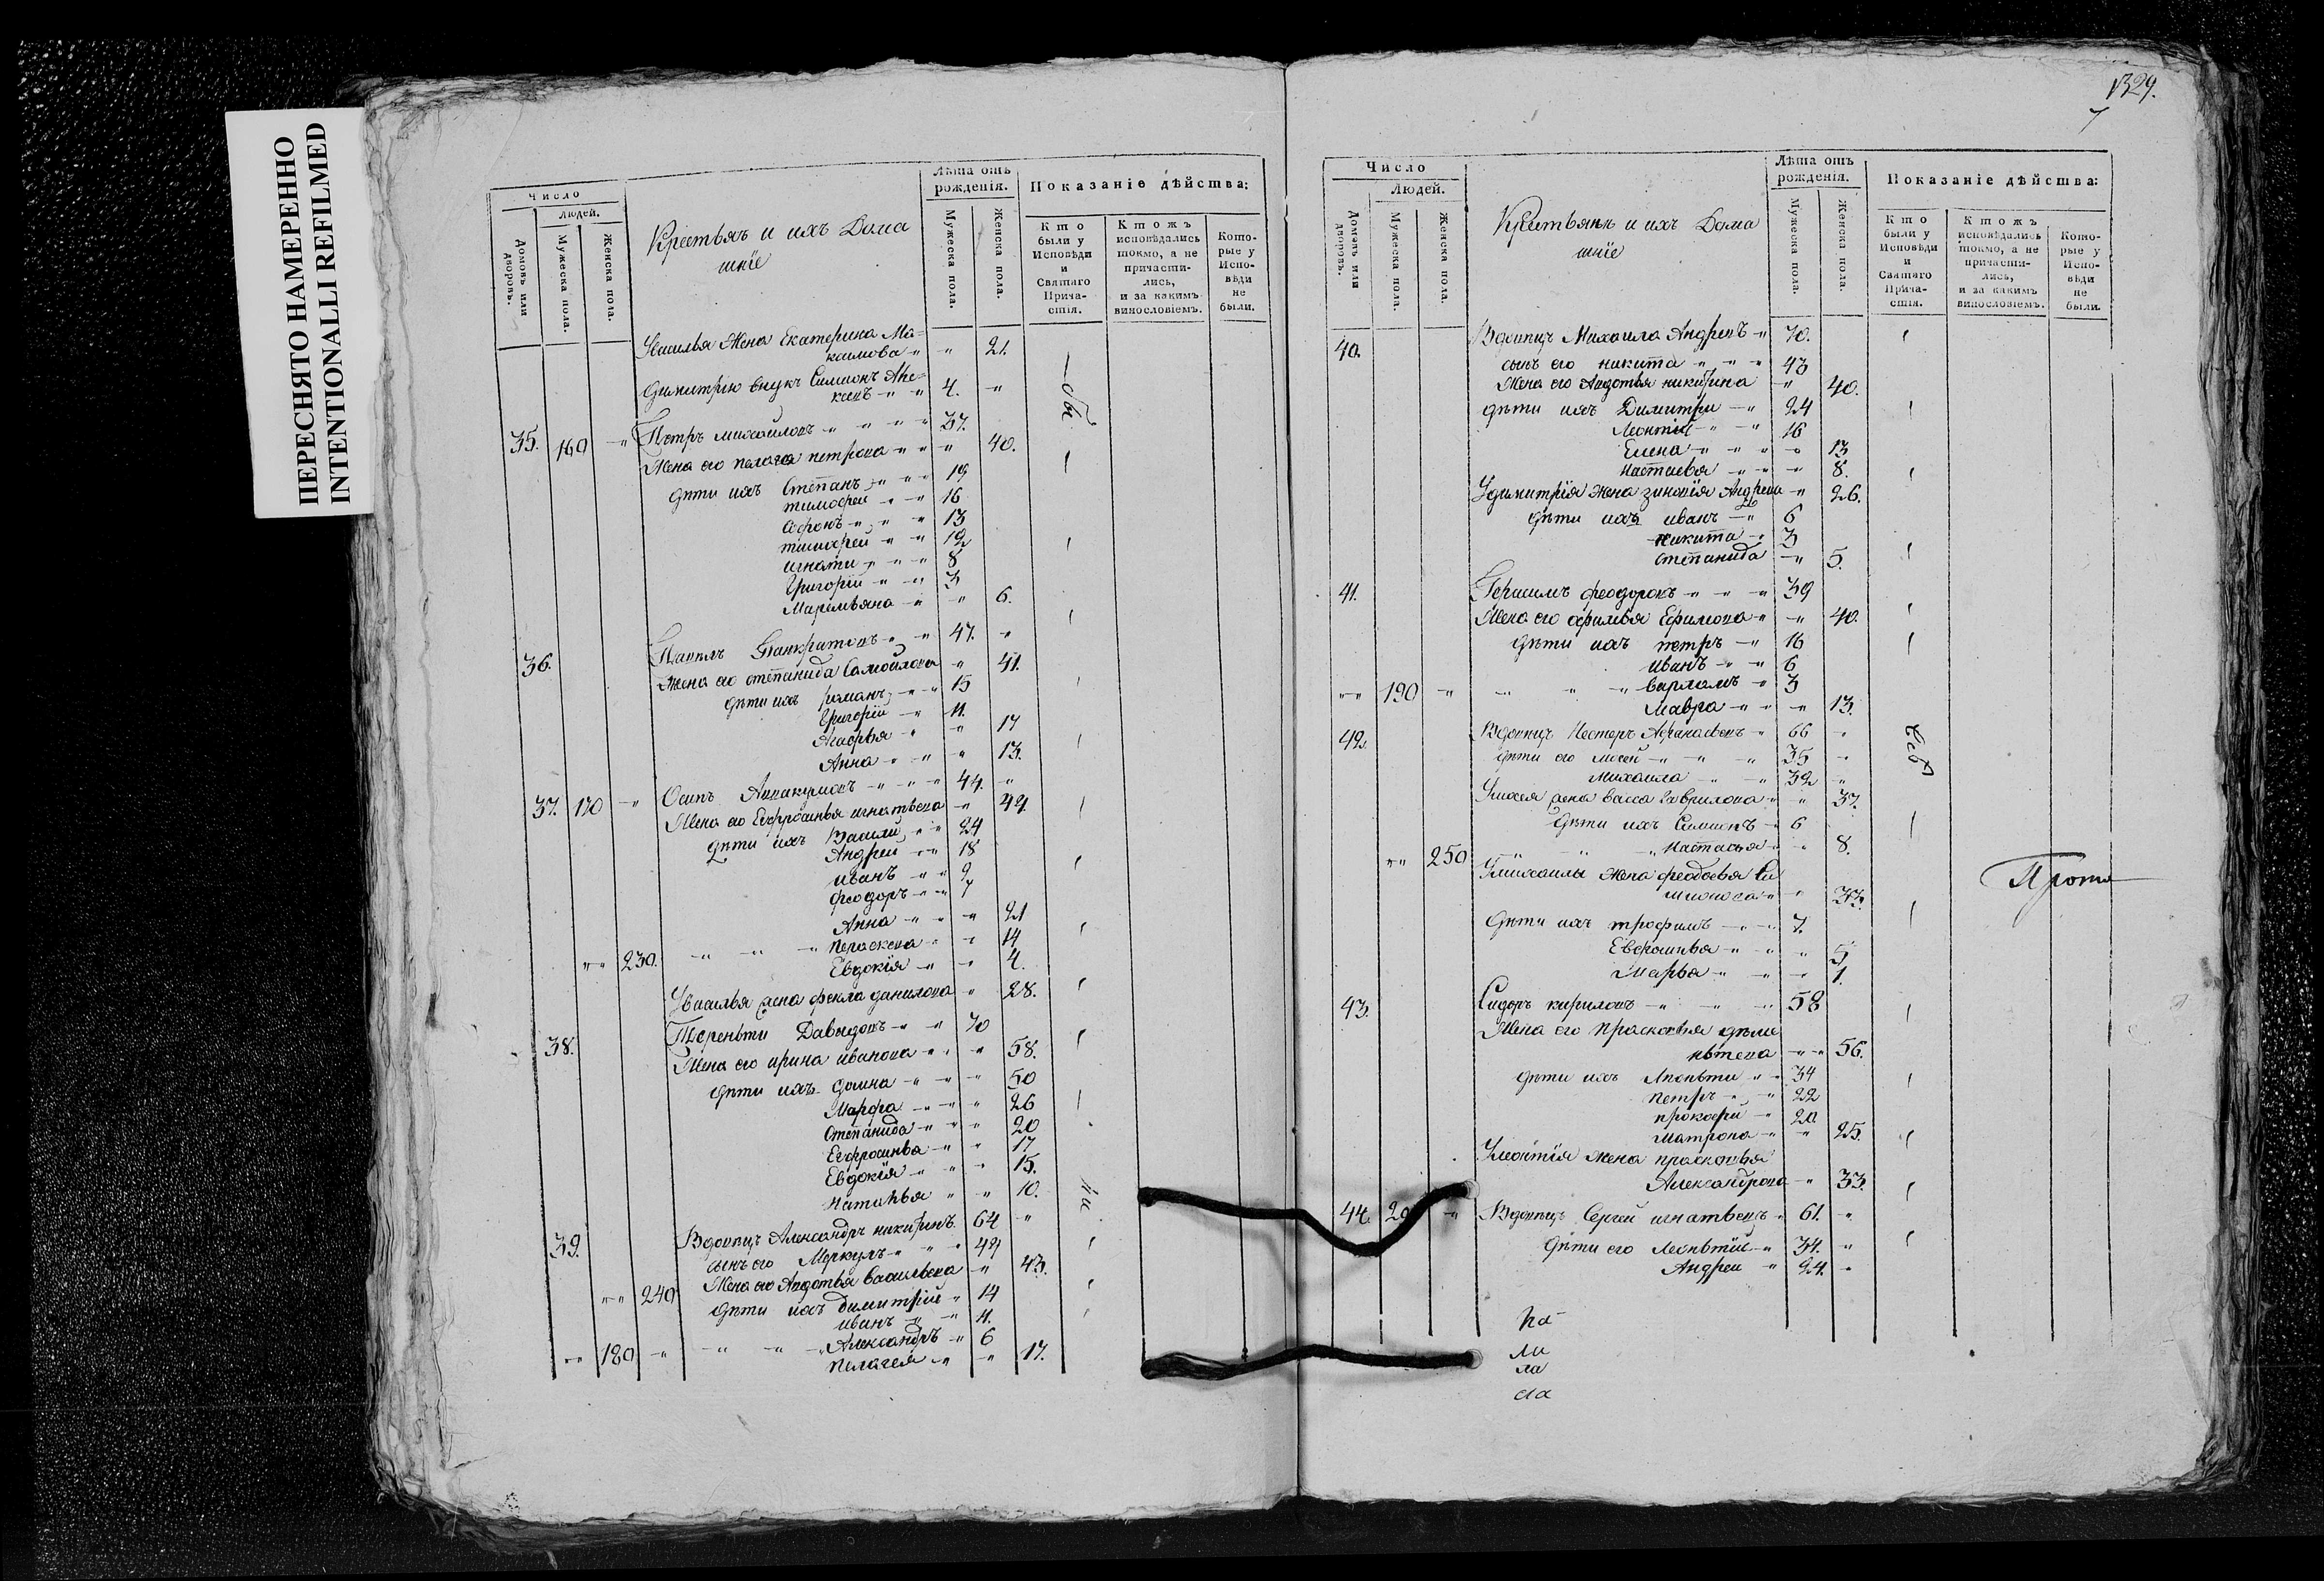 ПЕРЕСНЯТО НАМЕРЕННО
INTENTIONALLI REFILMED
Число
Людей.
Домовъ или дворовъ.
Мужеска пола.
Женска пола.
Крестьянъ и ихъ Дома
шніе
Лѣта отъ рожденія.
Мужеска пола.
Женска пола.
Показаніе дѣйства:
Кто были у Исповѣди и Святаго Прича-стія.
Ктожъ исповѣдались токмо, а не причасти-лись, и за какимъ винословіемъ.
Кото-рые у Испо-вѣди не были.
Увасилья Жена Екатерина Ма=
ксимова " " 21.
Димитрію внукъ Симионъ
4. "
35. 160 " Петръ михайловъ " " " 37.
Жена его пелагея петрова " " " 40.
дѣти ихъ Степанъ " " 19
тимофей " " 16
13
12
игнати " " " 8
Григорій " " 3
Маремьяна " " 6.
36. Павилъ Панкратовъ " " 47. "
Жена его степанида Самойлова " 41.
дѣти ихъ романъ " " 15
Григорій " 11.
Агафья " " 17
Анна " " " 13.
37. 170 " Осипъ Аввакумовъ " " " 44. "
Жена его Евфросинья игнатьева " 42
дѣти ихъ Васили " " 24
Андрей " " 18
иванъ " " 9
феодоръ " " 7
Анна " " " 21
" " 230. " " " пераскева " " 14
Евдокія " " 4.
Увасилья жена фекла данилова " 28.
38. Тереньти Давыдовъ " " 70
Жена его ирина иванова " " " 58.
дѣти ихъ домна " " " 30
Марфа " " " 26
Степанида " " " 20
Евфросинья " " 17
Евдокія " " " 15.
Наталья " " 10.
39. Вдовецъ Александръ никитинъ. 64 "
сынъ его Меркулъ " " " 42
Жена его Авдотья васильева " 43.
" " 240 дѣти ихъ димитрій " 14
иванъ " " 11.
" " 180 " " " " Александръ " 6
пелагея " " 17.
1329.
Число
Людей.
Домовъ или дворовъ.
Мужеска пола.
Женска пола.
Крестьянъ и ихъ Дома
шніе
Лѣта отъ рожденія.
Мужеска пола.
Женска пола.
Показаніе дѣйства:
Кто были у Исповѣди и Святаго Прича-стія.
Ктожъ исповѣдались токмо, а не причасти-лись, и за какимъ винословіемъ.
Кото-рые у Испо-вѣди не были.
40. Вдовецъ Михаила Андреевъ " 70.
сынъ его никита " " " 43
Жена его Авдотья никитина " 40.
дѣти ихъ Димитри " " 24
Леонтій " " 16
Елена " " " " 13
настасья " " " 8.
Удимитрія жена зиновія Андреева " 26.
дѣти ихъ иванъ " " 6
никита " 3
степанида " " 5.
41. Герасимъ феодоровъ " " " 39
Жена его офимья Ефимова " " 40.
дѣти ихъ петръ " " 16
иванъ " " 6
" " 190 " " " " варламъ " 3
Мавра " " " 13.
42. Вдовецъ Несторъ Афанасьевъ " 66 "
дѣти его мосей " " " 35 "
Михаила " " 32 "
жена васса Гаврилова " " 37.
дѣти ихъ Симионъ " 6
" " 250 " " " Настасья " " 8.
Умихаилы жена феодосья Си
мионова " " 33.
дѣти ихъ трофимъ " " 7.
Евфросинья " " " 5
Марья " " " 1.
43. Сидоръ кириловъ " " " 58
Жена его прасковья деме
нтьева " " 56.
дѣти ихъ Леоньти " " 34
петръ " " 22
прокофи " 20.
матрона " " 25.
Улеонтія жена прасковья
Александрова " 33.
44. " Вдовецъ Сергей игнатьевъ " 61. "
дѣти его Леоньтій " 34. "
Андреи " 24. "
Прото
на
ли
ла